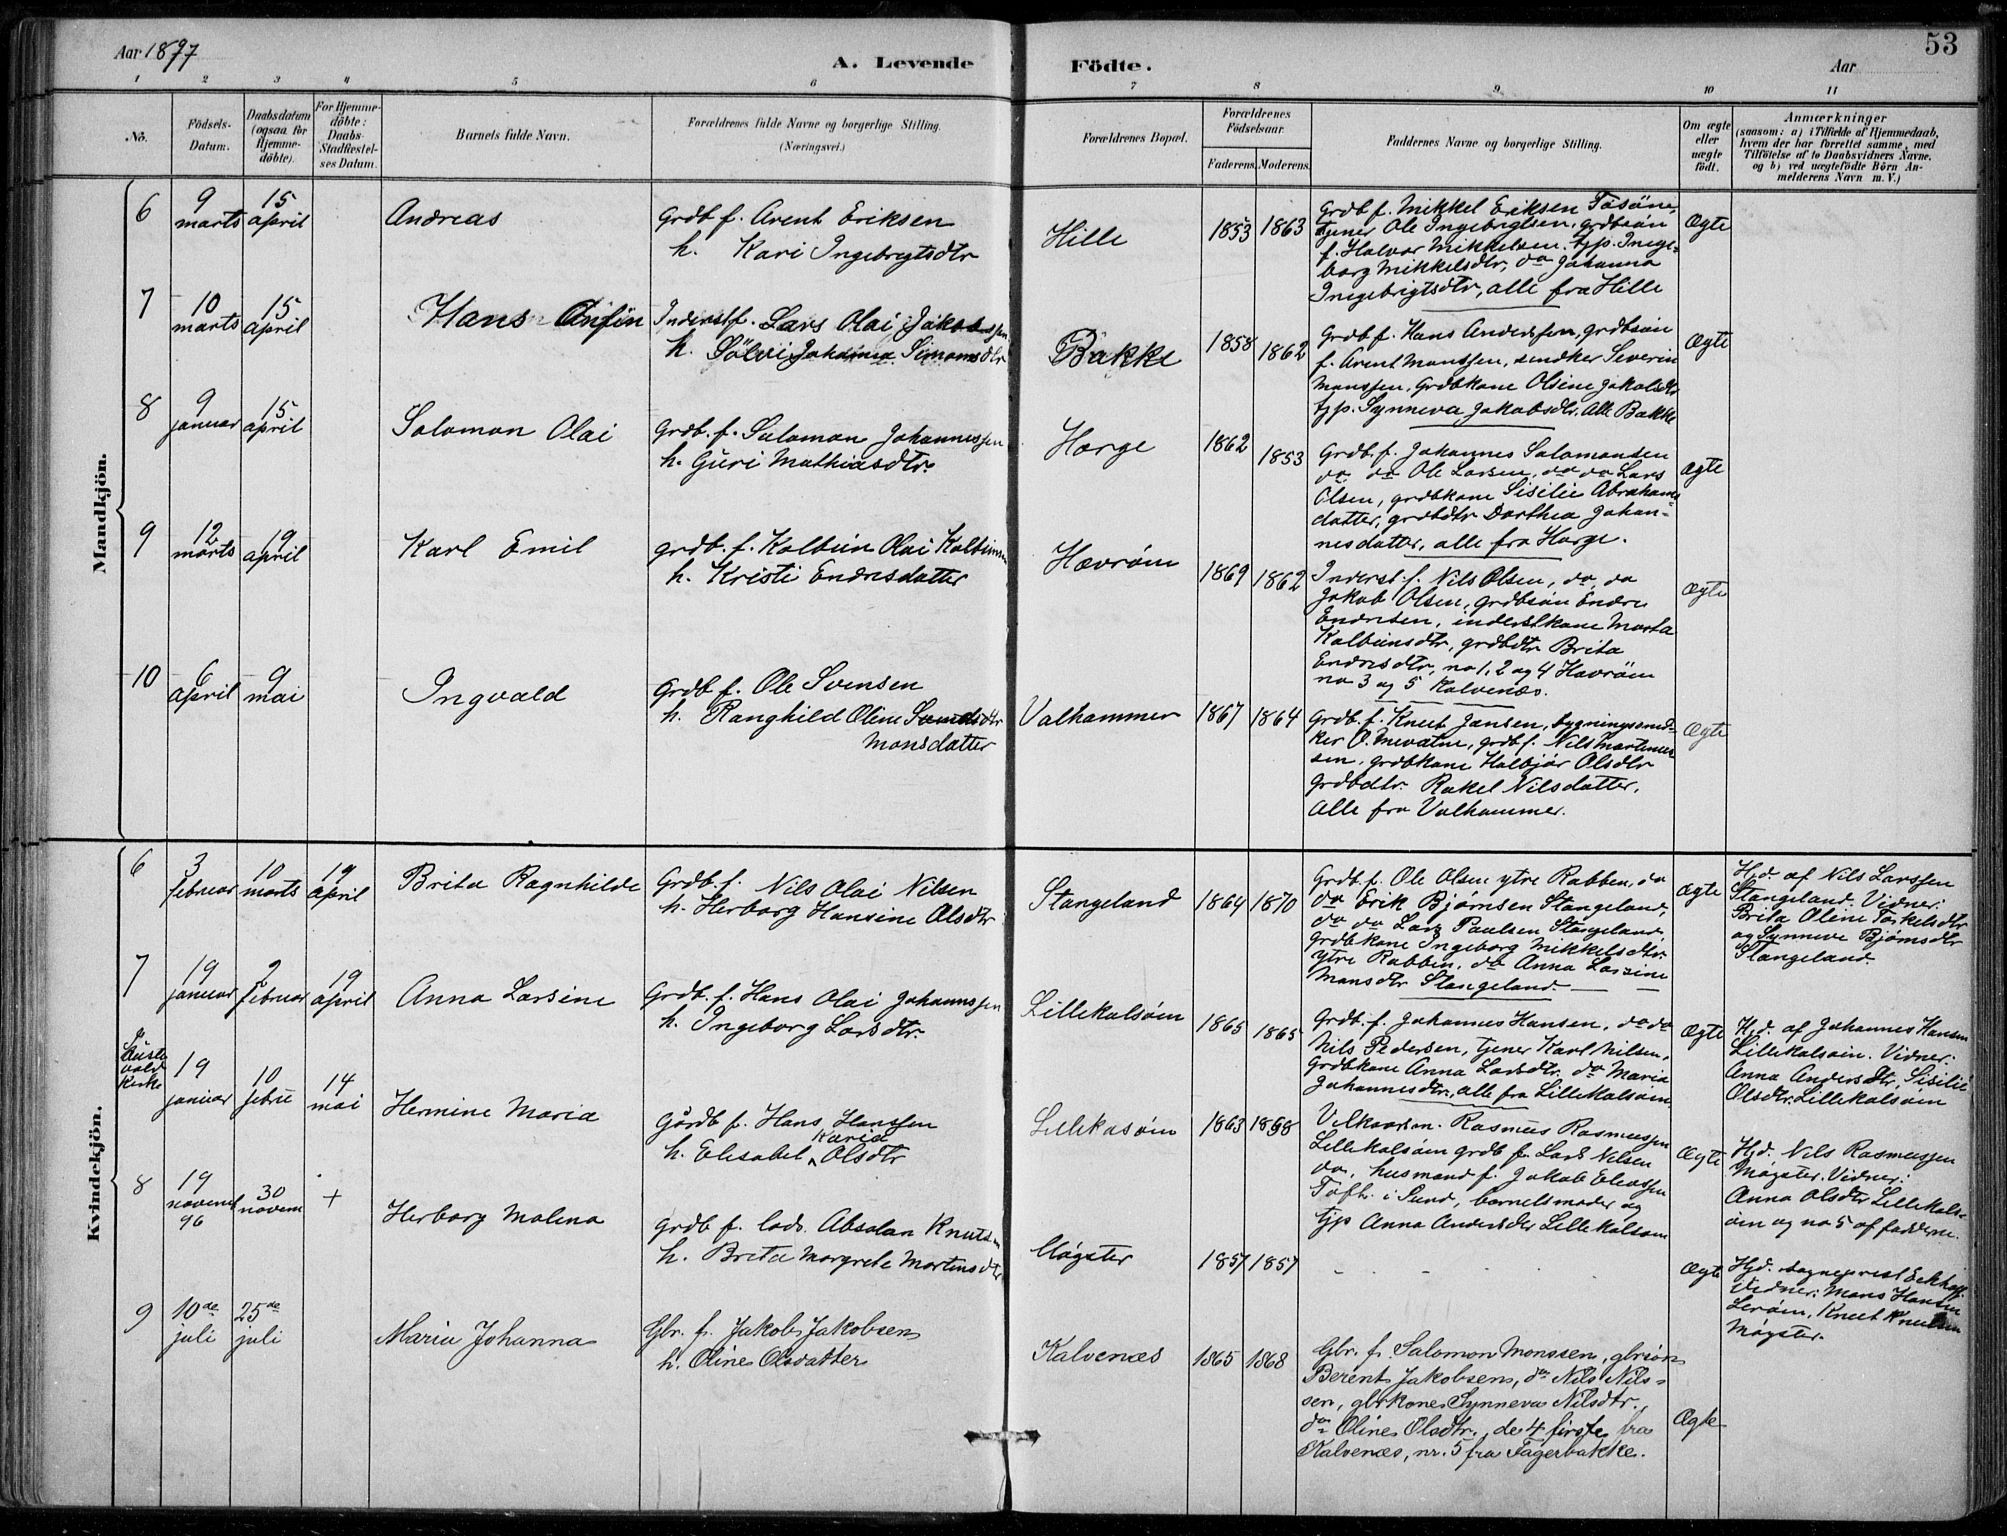 Aar 1897
A. Levende Födte.
Aar
53
1 2 3 4 5 6 7 8 9 10 11
No.
Födsels-
Datum.
Daabsdatum
(ogsaa for
Hjemme-
döbte).
For Hjemme-
döbte:
Daabs-
Stadfæstel-
ses Datum.
Barnets fulde Navn.
Forældrenes fulde Navne og borgerlige Stilling.
(Næringsvei.)
Forældrenes Bopæl.
Forældrenes
Födselsaar.
Faderens. Moderens.
Faddernes Navne og borgerlige Stilling.
Om ægte
eller
uægte
født.
Anmærkninger
(saasom: a) i Tilfælde af Hjemmedaab,
hvem der har forrettet samme, med
Tilföielse af to Daabsvidners Navne,
og b) ved uægtefödte Börn An-
melderens Navn m. V.)
Mandkjön.
6
9
marts
15
april
Andreas
Grdb f. Arent Eriksen
h. Kari Ingebrigtsdtr
Hille
1853 1863
Grdb f. Mikkel Eriksen
tjener Ole Ingebrigtsen, grdbsøn
f. Halvor Mikkelsen, tjp. Inge-
borg Mikkelsdtr, do Johanna
Ingebrigtsdtr, alle fra Hille
Ægte
7
10
marts
15
april
Hans Anfin
Inderst f. Lars Olai Jakobssen
h. Sölvi Johanna Simonsdtr
Bakke
1858 1862
Grdb f. Hans Anderssen, grdbsøn
f. Arent Monssen, snedker Severin
Monssen, Grdbkone Olsine Jakobsdtr
tjp. Synneva Jakobsdtr. Alle Bakke
Ægte
8
9
januar
15
april
Salomon Olai
Grdb. f. Salomon Johannessen
h. Guri Mathiasdtr.
Horge
1862 1853
Grdb. f. Johannes Salomonsen
do do Ole Larsen, do do Lars
Olsen, grdbkone Sisilie Abrahams
datter, grdbdtr Dorthea Johan-
nesdatter, alle fra Horge.
Ægte
9
12
marts
19
april
Karl Emil
grdb. f. Kolbein Olai Kolbeinsen
h. Kristi Endresdatter
Hævrøin
1869 1862
Inderst f. Nils Olsen, do do
Jakob Olsen, grdbsøn Endre
Endresen, inderstkone Marta
Kolbeinsdtr, grdbdtr Brita
Endresdtr, no 1, 2 og 4 Hævrøin
no 3 og 5 Kalvenæs.
Ægte
10
6
april
9
mai
Ingvald
Grdb f. Ole Svensen
h. Ranghild Oline
Monsdatter
Valhammer
1867 1864
Grdb. f. Knut Jansen, bygningssned-
ker O. Mevatne, grdb f. Nils Martinus
sen, grdbkone Halbjør Olsdtr
grdbdtr. Rakel Nilsdatter.
Alle fra Valhammer.
Ægte
Kvindekjön.
6
3
februar
10
marts
19
april
Brita Ragnhilde
Grdb. f. Nils Olai Nilsen
h. Herborg Hansine Olsdtr
Stangeland
1864 1870
Grdb. f. Ole Olsen ytre Rabben, do
do Erik Bjørnsen Stangeland,
do do Lars Paulsen Stangeland
Grdbkone Ingeborg Mikkelsdtr
ytre Rabben, do Anna Larsine
Monsdtr Stangeland
Ægte
Hjd. af Nils Larssen
Stangeland. Vidner:
Brita Oline Torkelsdtr
og Synneve Bjørnsdtr
Stangeland
7
19
januar
2
februar
19
april
Anna Larsine
Grdb. f. Hans Olai Johannssen
h. Ingeborg Larsdtr.
Lillekalsøin
1865 1865
Grdb. f. Johannes Hansen, do do
Nils Pedersen, tjener Karl Nilsen,
Grdbkone Anna Larsdtr. do Maria
Johannesdtr, alle fra Lillekalsøin
Ægte
Hjd. af Johannes Hansen
Lillekalsøin. Vidner:
Anna Andersdtr, Sisilie
Olsdtr. Lillekalsøin
kirke
19
januar
10
febru
14
mai
Hermine Maria
Gårdb f. Hans Hanssen
h. Elisabet Karia Olsdtr
Lillekasøin
1863 1868
Vilkaarsm. Rasmus Rasmussen
Lillekalsøin grdb f. Lars Nilsen
do, husmand f. Jakob Eliassen
Toft. i Sund, barnets moder og
tjp Anna Andersdtr Lillekalsøin
Ægte
Hjd. Nils Rasmussen
Møgster. Vidner:
Anna Olsdtr Lillekals-
øin og no 5 af fadderne.
8
19
novemb
96
30
novem
+
Herborg Malena
Grdb f. lods. Absalon Knutsen
h. Brita Margrete Martinsdtr
Møgster
1857 1857
Ægte
Hjd. sogneprest Eckhoff.
Vidner: Mons Hansen
Lerøin, Knut Knutsen
Møgster.
9
10de
juli
25de
juli
Maria Johanna
Gbr. f. Jakob Jakobsen
h. Oline Olsdatter
Kalvenæs
1865 1868
Gbr. f. Salomon Monssen, gbrsøn
Berent Jakobsen, do Nils Nils-
sen, gbrkone Synneva Nilsdtr.
do Oline Olsdtr. de 4 förste fra
Kalvenæs, nr. 5 fra Fagerbakke.
Ægte